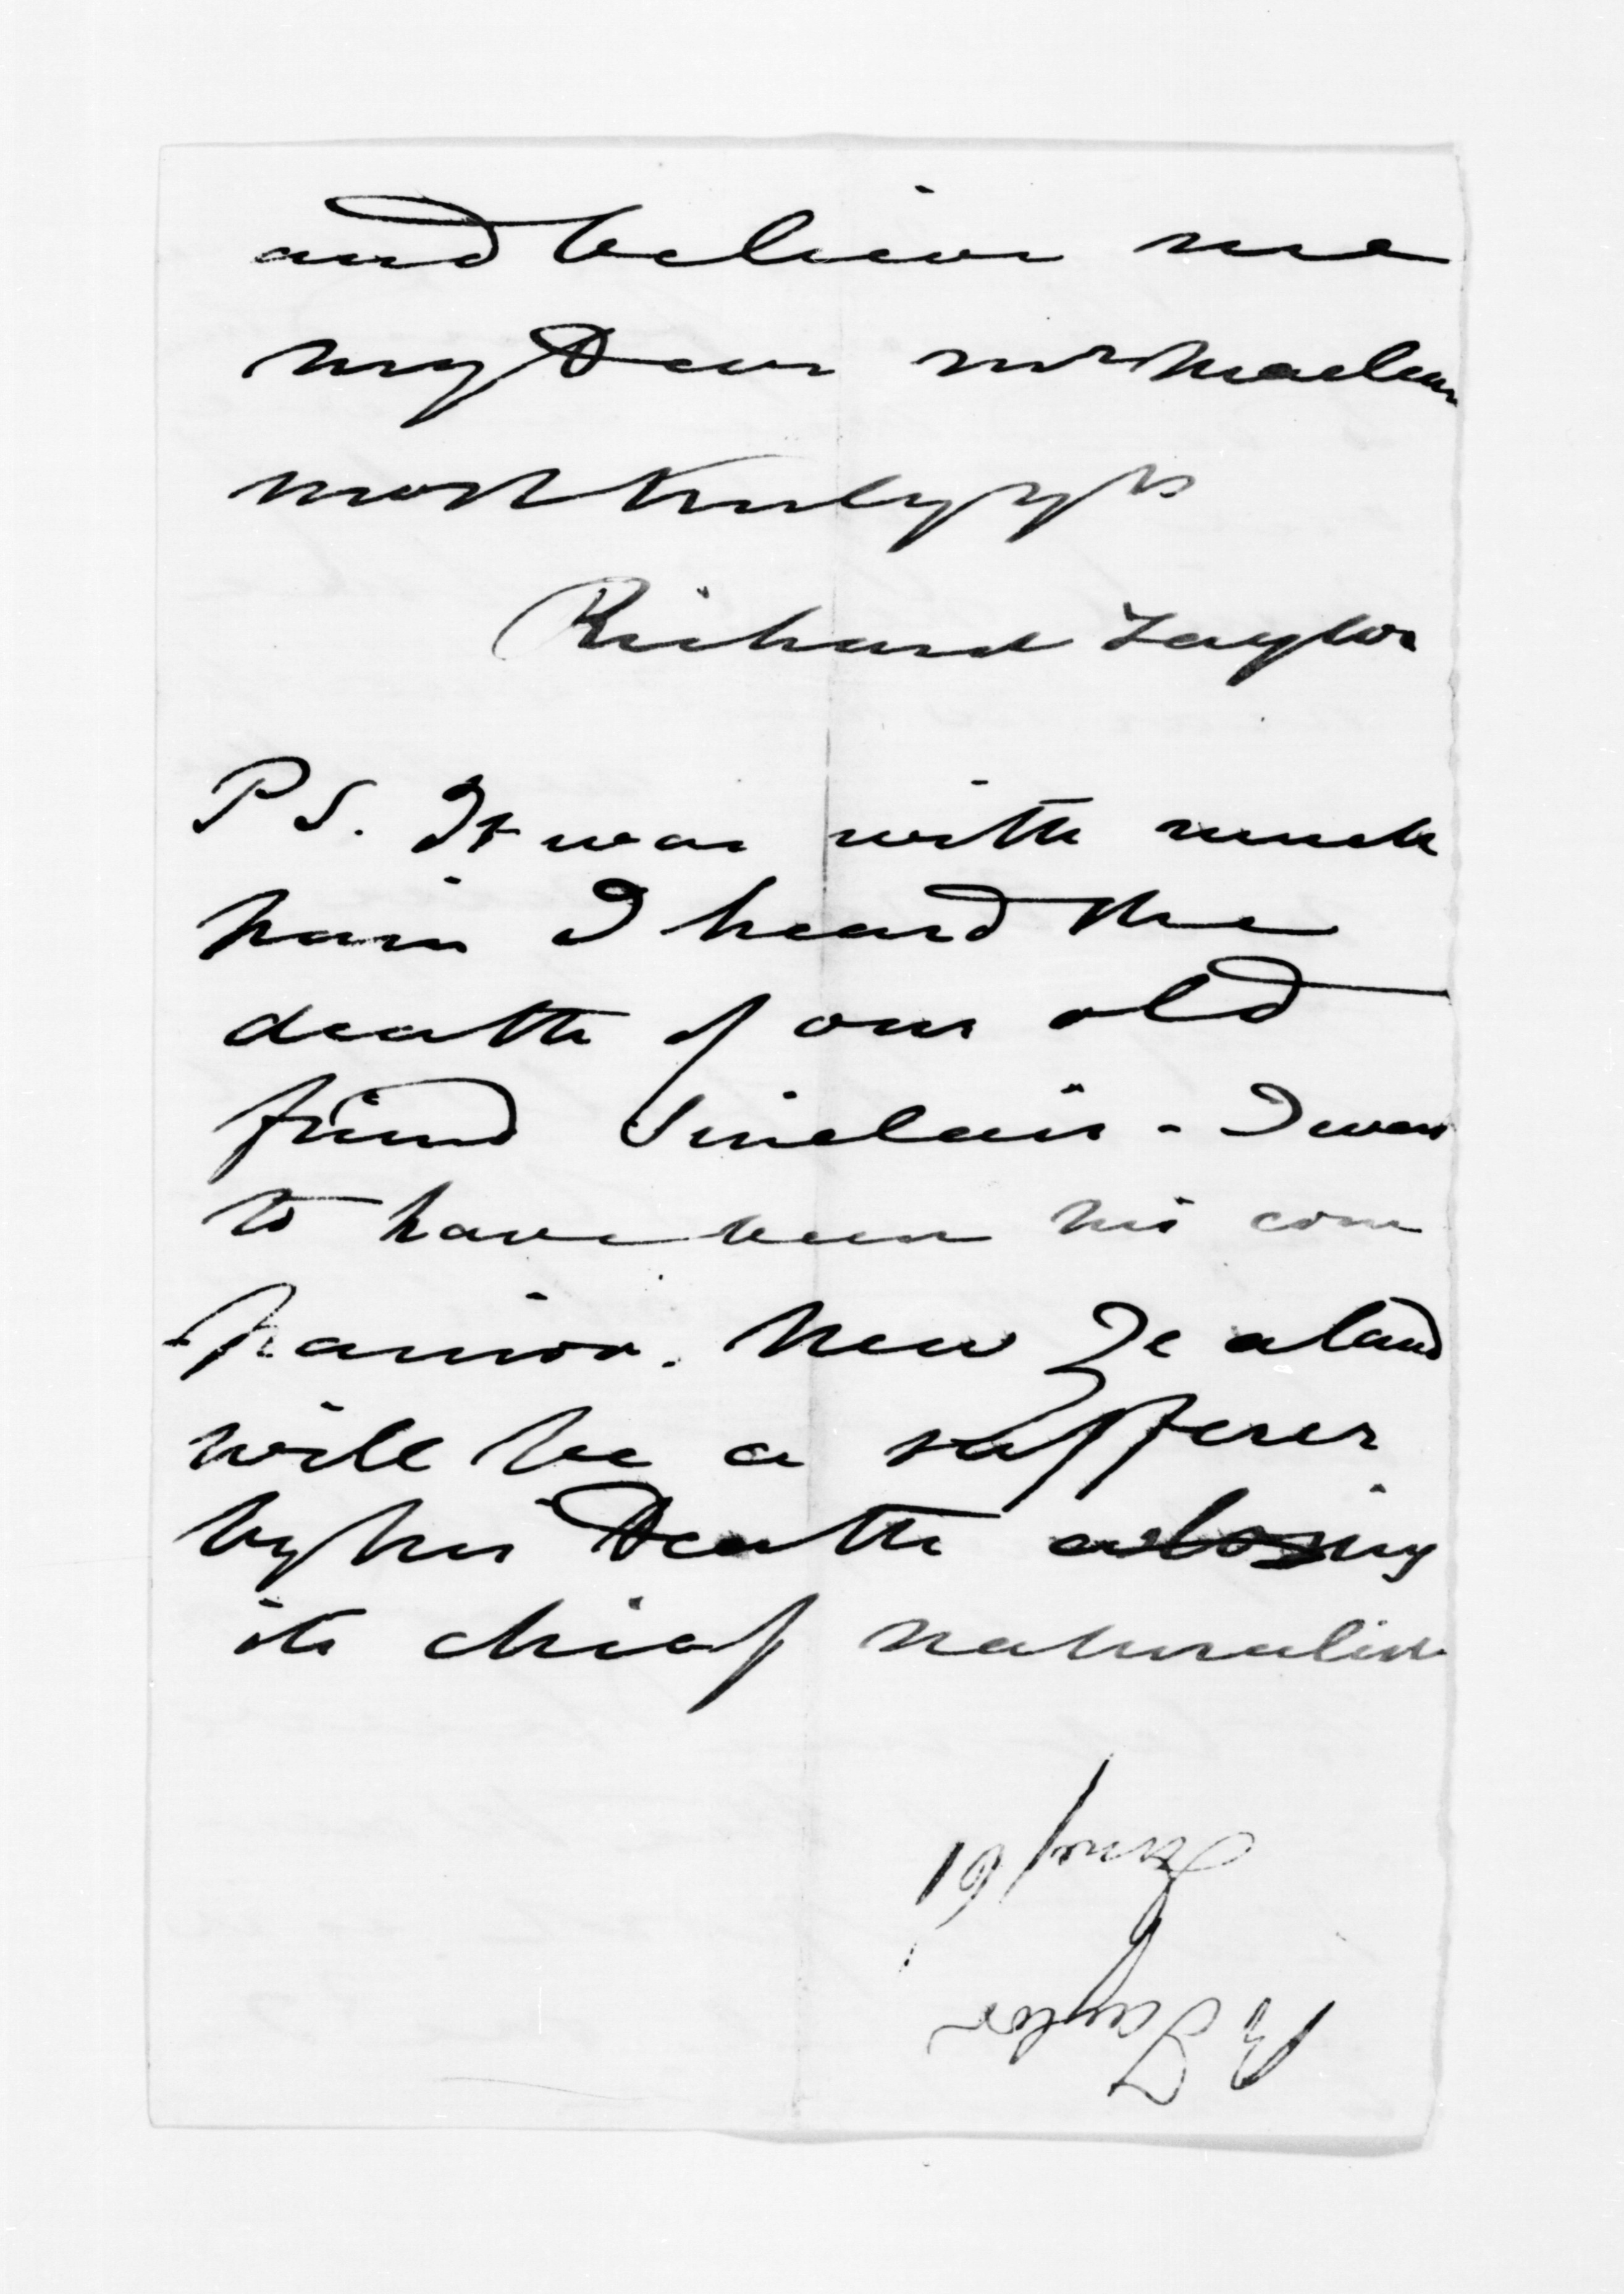 and believe me
my Dear Mr Maclean
most truly yrs
Richard Taylor
P S. It was with much
pain I heard the
death of our old
friend Sinclair - I was
to have been his com
-panion. New Zealand
will be a sufferer
by his Death losing
its chief naturalist
R Taylor
61